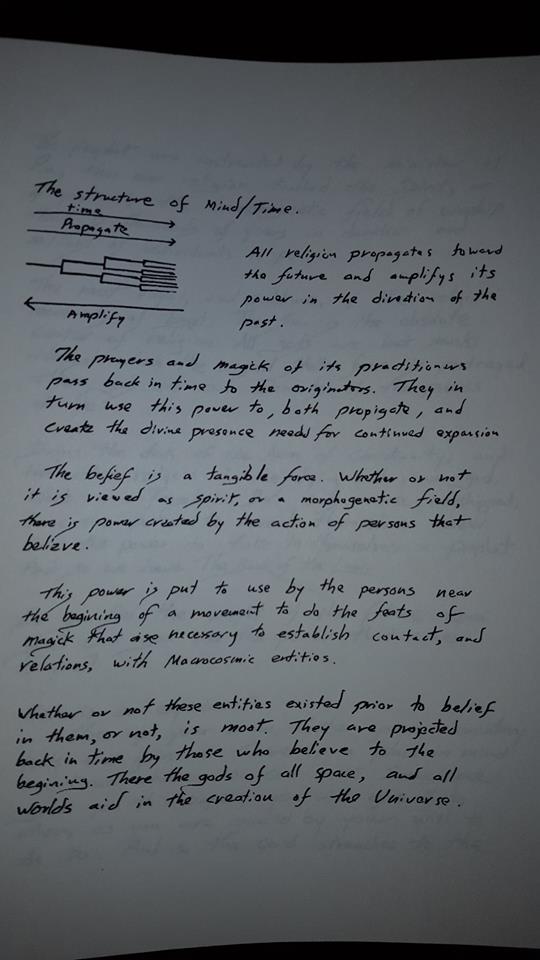 The structure of Mind/Time.
time
Propagate
Amplify
All religion propagates toward
the future and amplifys its
power in the direction of the
past.
The prayers and magick of its practitioners
pass back in time to the originators. They in
turn use this power to, both propigate, and
create the divine presence needs for continued expansion
The belief is a tangible force. Whether or not
it is viewed as spirit, or a morphogenetic field,
there is power created by the action of persons that
believe.
This power is put to use by the persons near
the begining of a movement to do the feats of
magick that are necessary to establish contact, and
relations, with Macrocosmic entities.
Whether or not these entities existed prior to belief
in them, or not, is moot. They are projected
back in time by those who believe to the
begining. There the gods of all space, and all
worlds aid in the creation of the Universe.